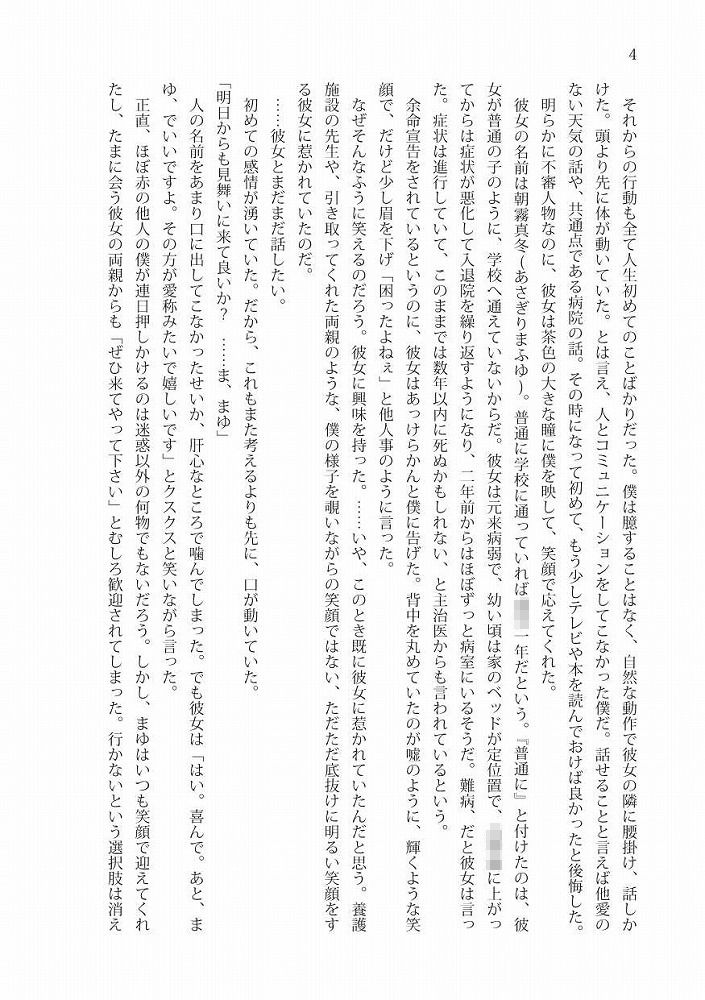 4
それからの行動も全て人生初めてのことばかりだった。僕は臆することはなく、自然な動作で彼女の隣に腰掛け、話しか
けた。頭より先に体が動いていた。とは言え、人とコミュニケーションをしてこなかった僕だ。話せることと言えば他愛の
ない天気の話や、共通点である病院の話。その時になって初めて、もう少しテレビや本を読んでおけば良かったと後悔した。
明らかに不審人物なのに、彼女は茶色の大きな瞳に僕を映して、笑顔で応えてくれた。
彼女の名前は朝霧真冬(あさぎりまふゆ)。普通に学校に通っていれば一年だという。『普通に』と付けたのは、彼
女が普通の子のように、学校へ通えていないからだ。彼女は元来病弱で、幼い頃は家のベッドが定位置で、に上がっ
てからは症状が悪化して入退院を繰り返すようになり、二年前からはほぼずっと病室にいるそうだ。難病、だと彼女は言っ
た。症状は進行していて、このままでは数年以内に死ぬかもしれない、と主治医からも言われているという。
余命宣告をされているというのに、彼女はあっけらかんと僕に告げた。背中を丸めていたのが嘘のように、輝くような笑
顔で、だけど少し眉を下げ「困ったよねぇ」と他人事のように言った。
なぜそんなふうに笑えるのだろう。彼女に興味を持った。……いや、このとき既に彼女に惹かれていたんだと思う。養護
施設の先生や、引き取ってくれた両親のような、僕の様子を覗いながらの笑顔ではない、ただただ底抜けに明るい笑顔をす
る彼女に惹かれていたのだ。
……彼女とまだまだ話したい。
初めての感情が湧いていた。だから、これもまた考えるよりも先に、口が動いていた。
「明日からも見舞いに来て良いか?　……ま、まゆ」
人の名前をあまり口に出してこなかったせいか、肝心なところで噛んでしまった。でも彼女は「はい。喜んで。あと、ま
ゆ、でいいですよ。その方が愛称みたいで嬉しいです」とクスクスと笑いながら言った。
正直、ほぼ赤の他人の僕が連日押しかけるのは迷惑以外の何物でもないだろう。しかし、まゆはいつも笑顔で迎えてくれ
たし、たまに会う彼女の両親からも「ぜひ来てやって下さい」とむしろ歓迎されてしまった。行かないという選択肢は消え